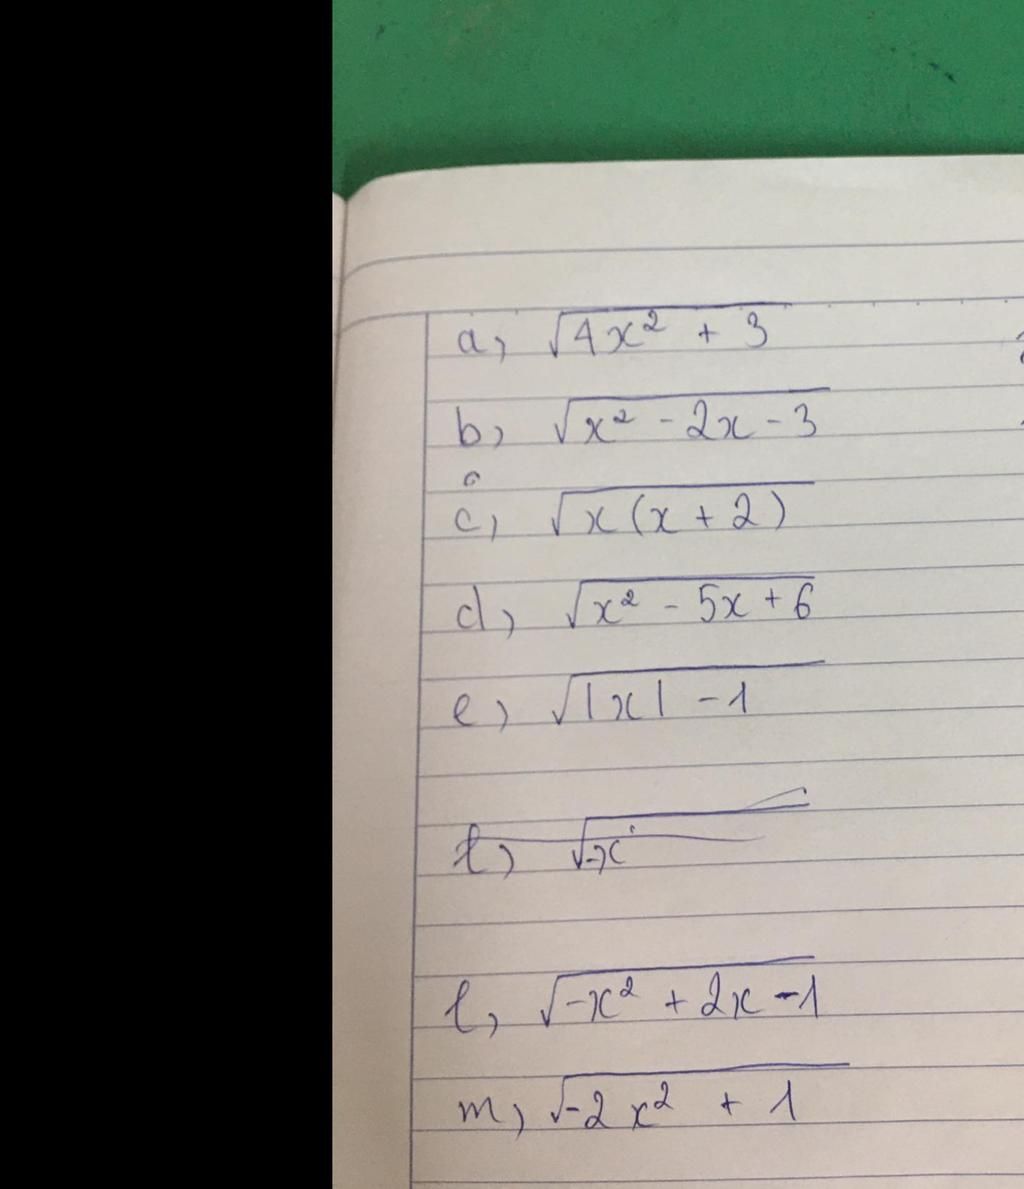 a, √4x² + 3
b, √x² - 2x - 3
c, √x(x + 2)
d, √x² - 5x + 6
e, √|x| - 1
l, √-x
l, √-x² + 2x - 1
m, √-2x² + 1